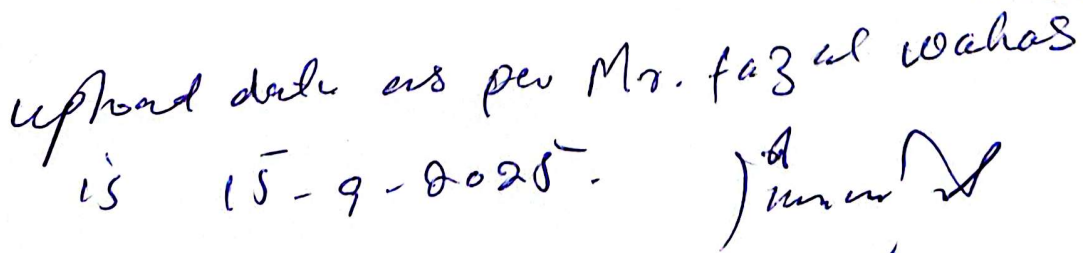 upload date as per Mr. fazal wahas
is 15-9-2025.